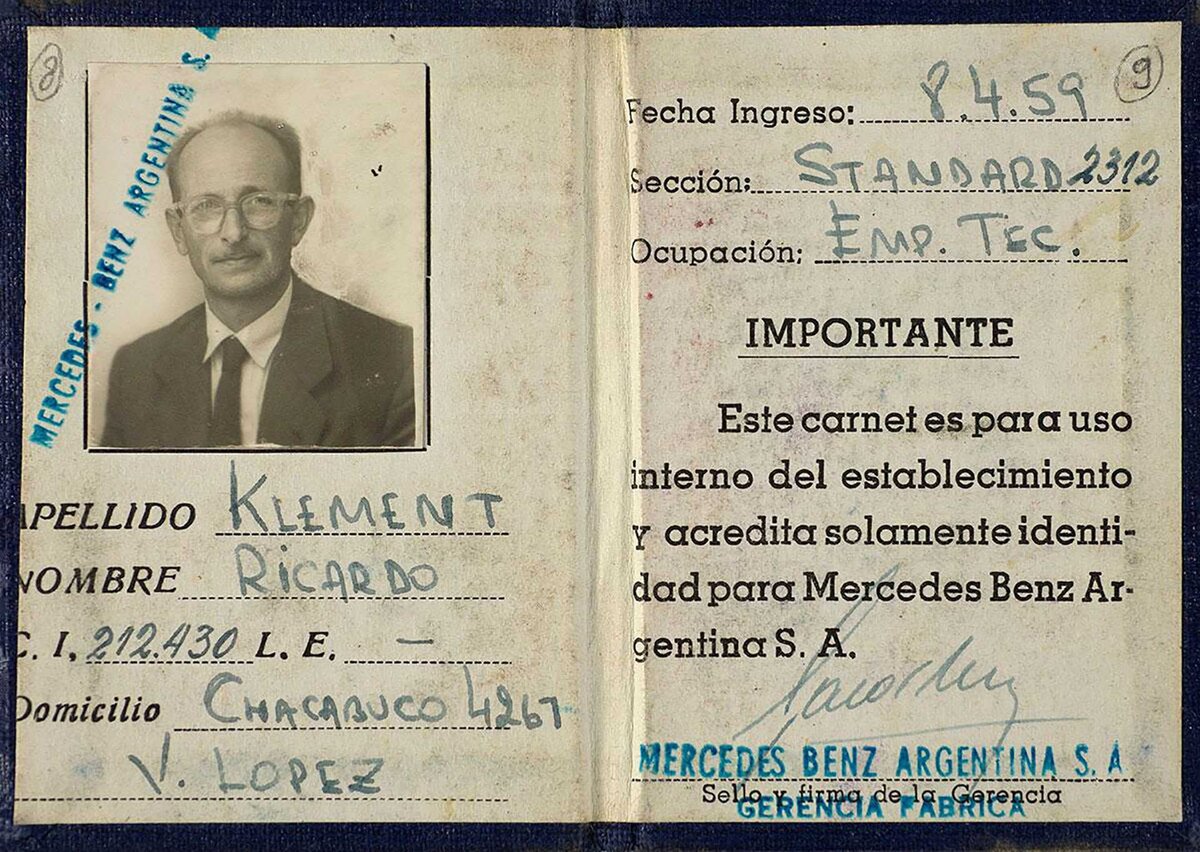 8
MERCEDES - BENZ ARGENTINA S. A
APELLIDO KLEMENT
NOMBRE RICARDO
C. I. 212.430 L. E. —
Domicilio CHACABUCO 4261
V. LOPEZ
9
Fecha Ingreso: 8.4.59
Sección: STANDARD 2312
Ocupación: EMP. TEC.
IMPORTANTE
Este carnet es para uso
interno del establecimiento
y acredita solamente identi-
dad para Mercedes Benz Ar-
gentina S. A.
MERCEDES BENZ ARGENTINA S. A
Sello y firma de la Gerencia
GERENCIA FABRICA